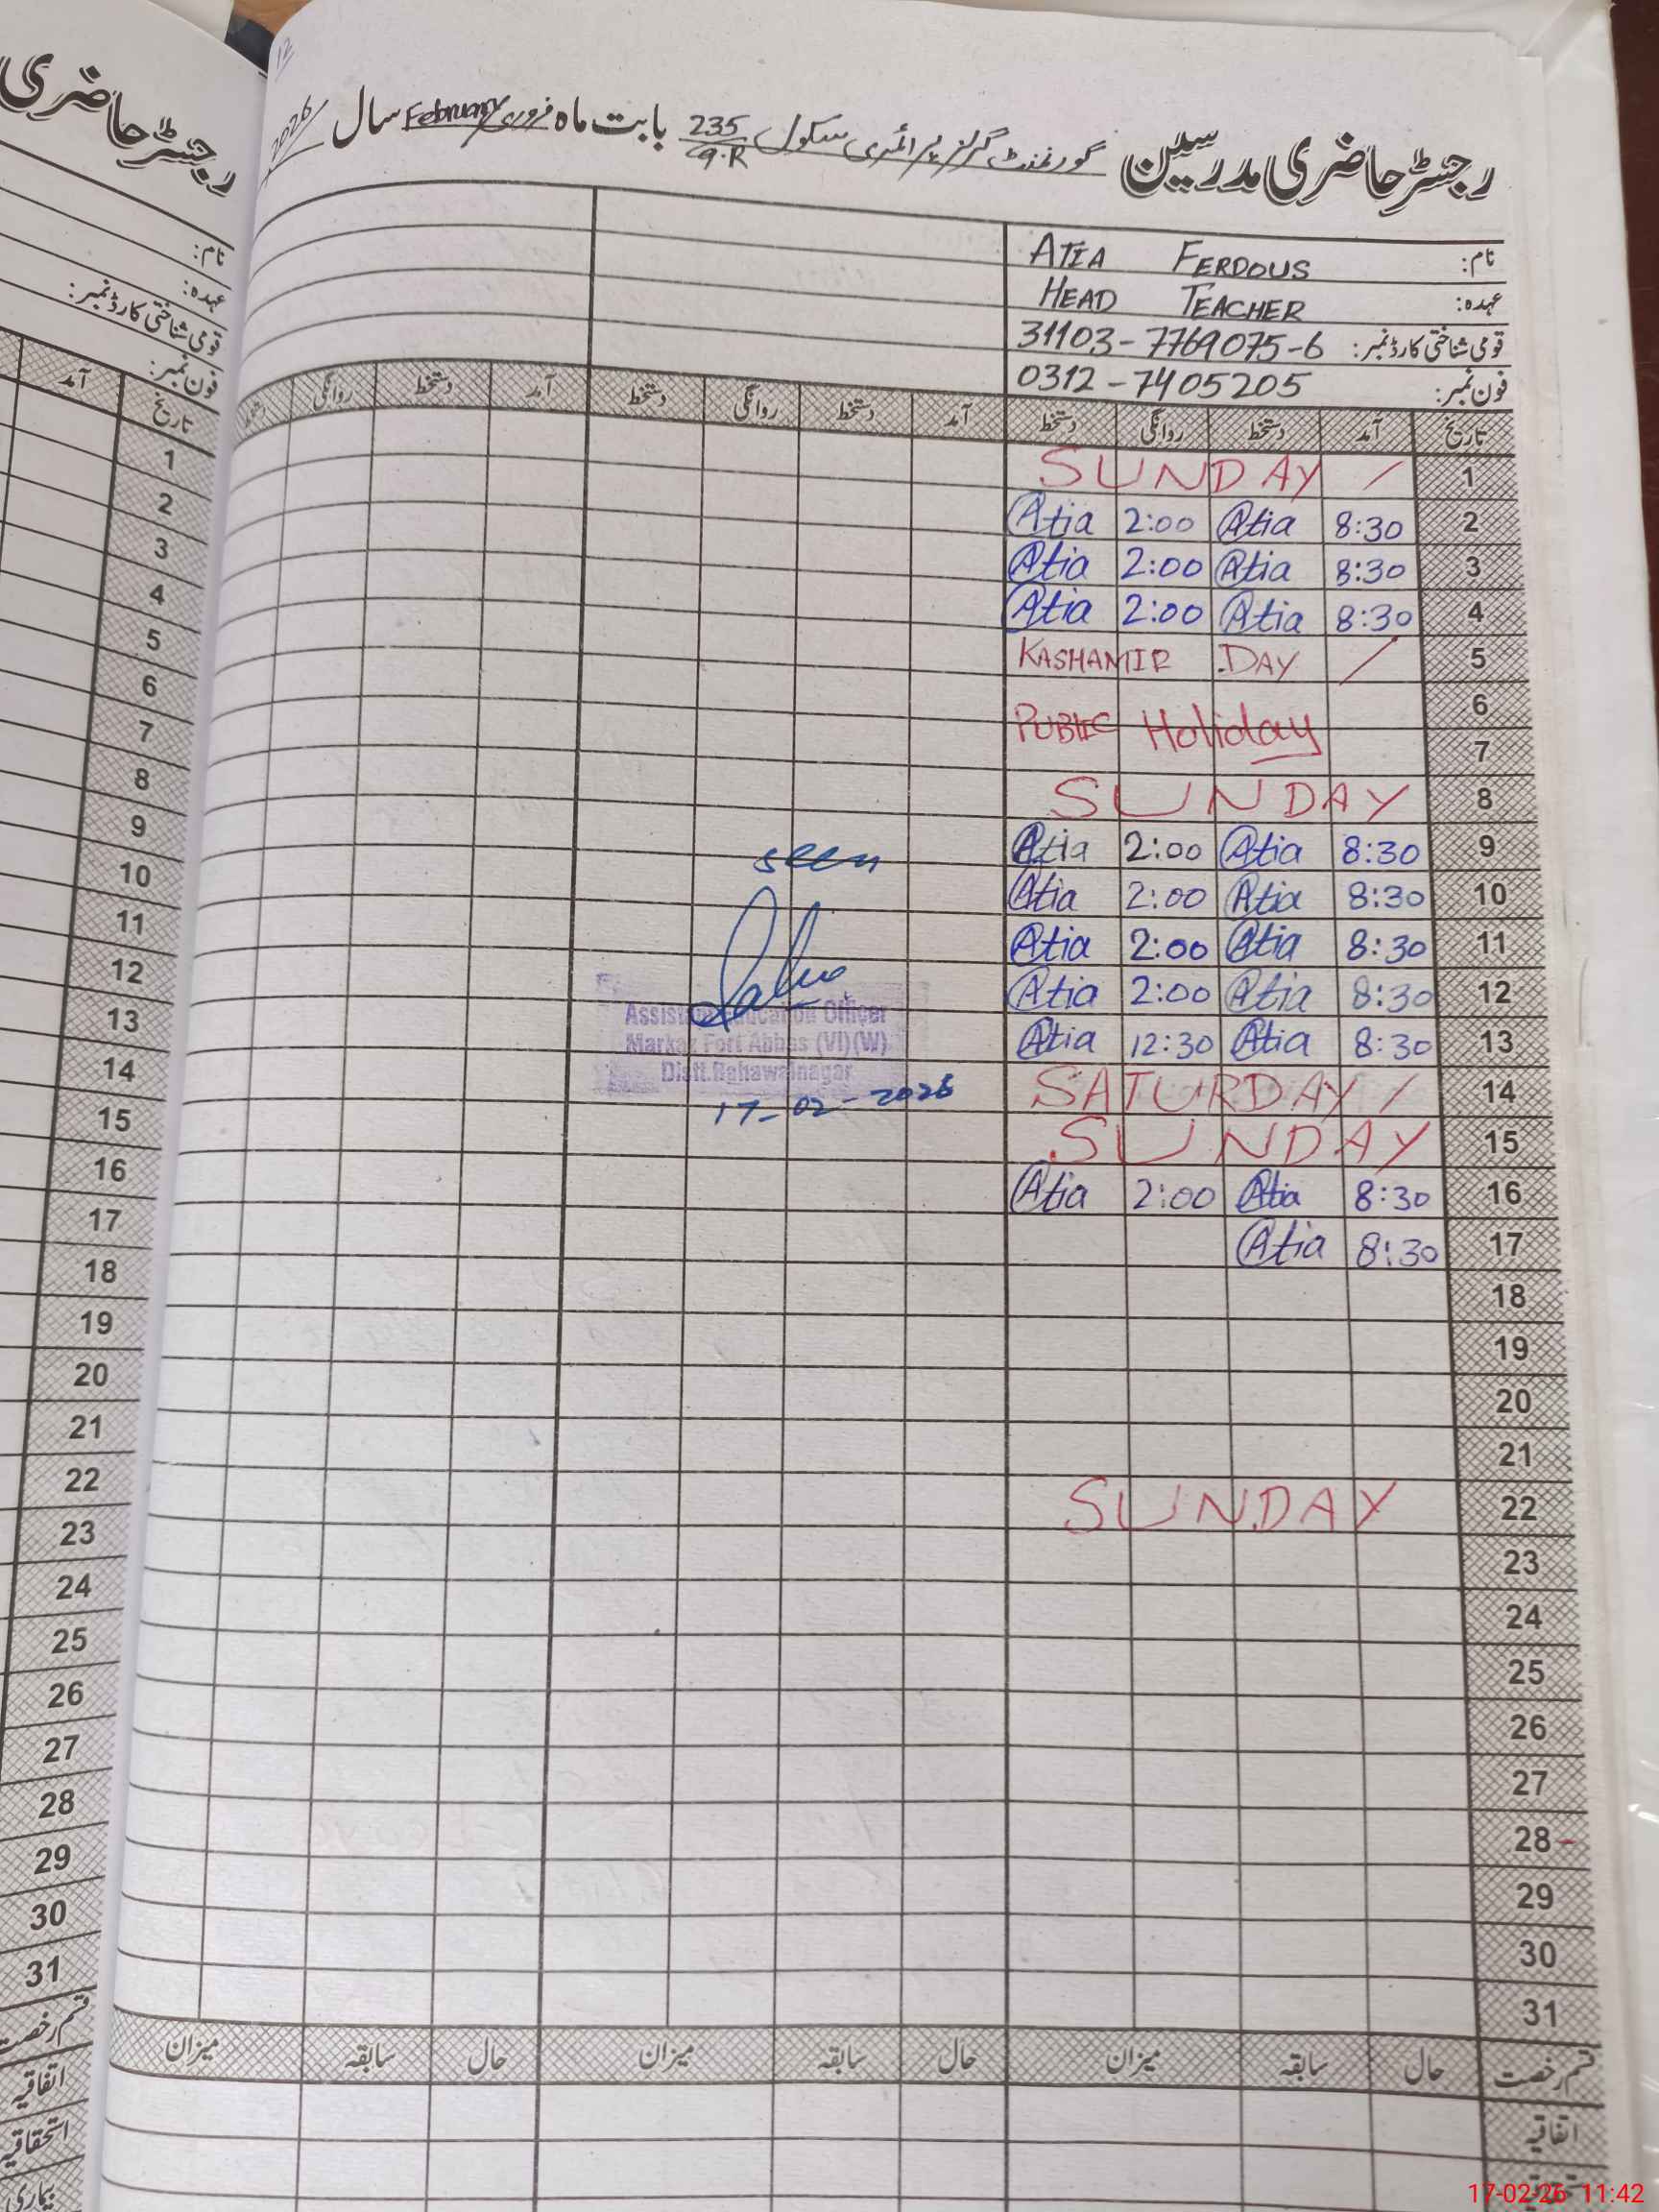 12
رجسٹر حاضری مدرسین گورنمنٹ گرلز پرائمری سکول 235/9.R بابت ماہ فروری February سال 2026
نام: ATIA FERDOUS
عہدہ: HEAD TEACHER
قومی شناختی کارڈ نمبر: 31103-7769075-6
فون نمبر: 0312-7405205
تاریخ آمد دستخط روانگی دستخط آمد دستخط روانگی دستخط آمد دستخط روانگی دستخط
1 SUNDAY
2 8:30 Atia 2:00 Atia
3 8:30 Atia 2:00 Atia
4 8:30 Atia 2:00 Atia
5 KASHAMIR DAY
6 PUBLIC Holiday
7
8 SUNDAY
9 8:30 Atia 2:00 Atia
10 8:30 Atia 2:00 Atia
11 8:30 Atia 2:00 Atia
12 8:30 Atia 2:00 Atia
13 8:30 Atia 12:30 Atia
14 SATURDAY
15 SUNDAY
16 8:30 Atia 2:00 Atia
17 8:30 Atia
18
19
20
21
22 SUNDAY
23
24
25
26
27
28
29
30
31
seen
Assistant Education Officer
Markaz Fort Abbas (VI)(W)
Distt.Bahawalnagar
17-02-2026
قسم رخصت حال سابقہ میزان حال سابقہ میزان حال سابقہ میزان
اتفاقیہ
رجسٹر حاضری
نام:
عہدہ:
قومی شناختی کارڈ نمبر:
فون نمبر:
تاریخ آمد
1
2
3
4
5
6
7
8
9
10
11
12
13
14
15
16
17
18
19
20
21
22
23
24
25
26
27
28
29
30
31
قسم رخصت
اتفاقیہ
استحقاقیہ
بیماری
17-02-26 11:42